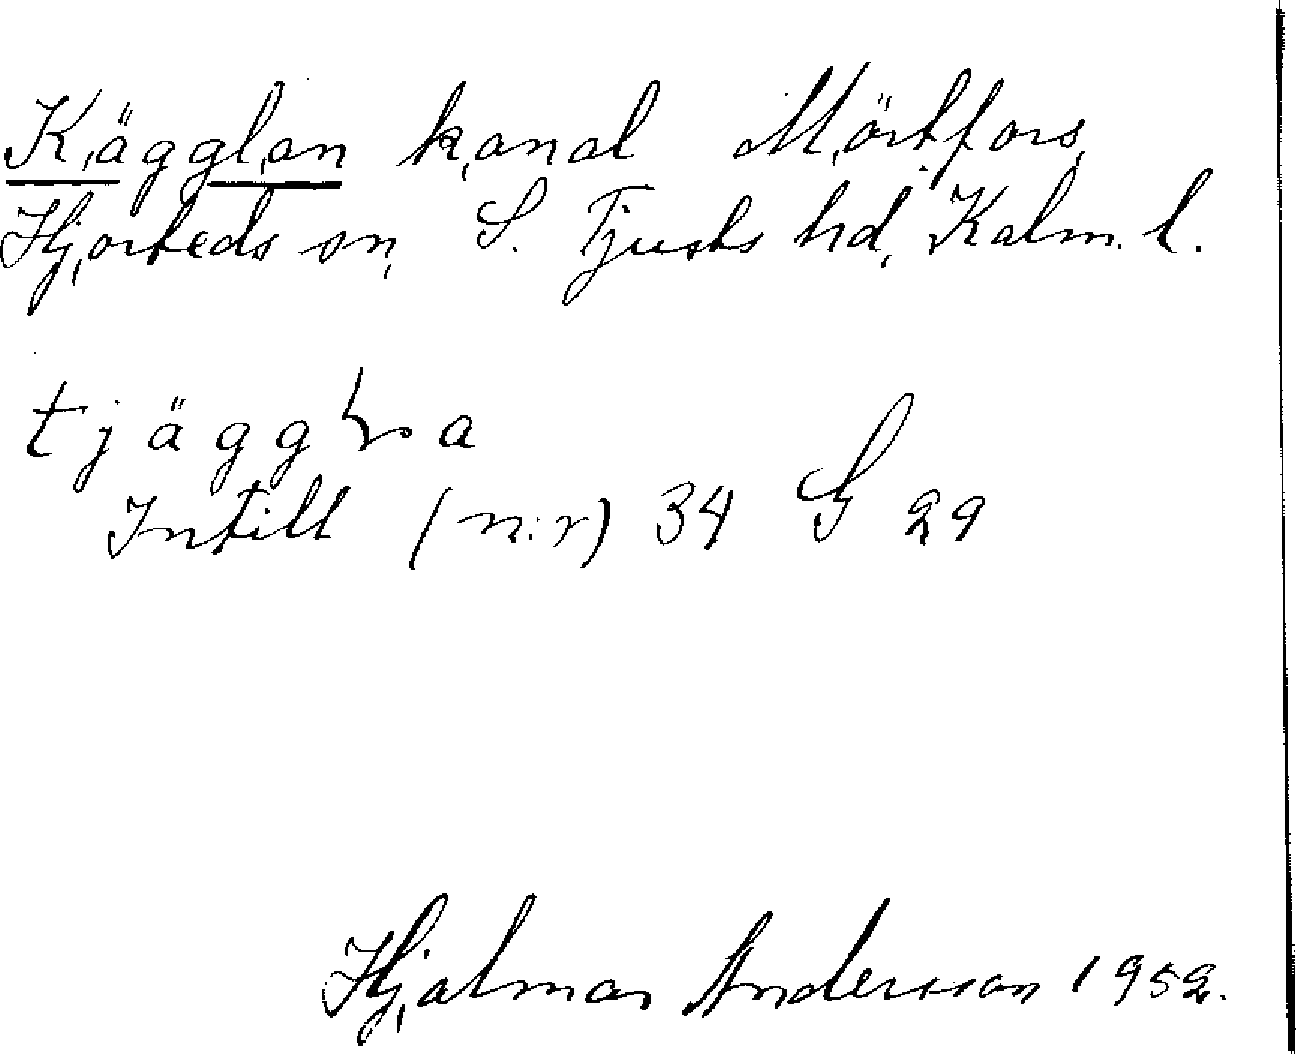 Kägglan kanal Mörtfors,
Hjorteds sn, S. Tjusts hd, Kalm. l.
tjäggla
Intill (n:r) 34 G 29
Hjalmar Andersson 1952.